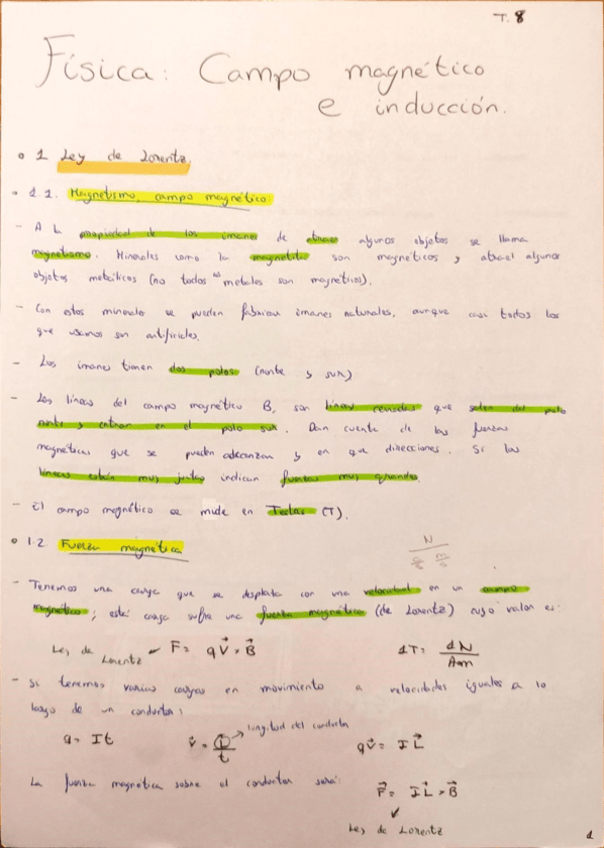 T. 8
Física: Campo magnético
e inducción.
1 Ley de Lorentz
1.1. Magnetismo, campo magnético
- A la propiedad de los imanes de atraer algunos objetos se llama
magnetismo. Minerales como la magnetita son magnéticos y atraen algunos
objetos metálicos (no todos los metales son magnéticos).
- Con estos minerales se pueden fabricar imanes naturales, aunque casi todos los
que usamos son artificiales.
- Los imanes tienen dos polos (norte y sur)
- Las líneas del campo magnético B, son líneas cerradas que salen del polo
norte y entran en el polo sur. Dan cuenta de las fuerzas
magnéticas que se pueden alcanzar y en que direcciones. Si las
líneas están muy juntas indican fuerzas muy grandes.
- El campo magnético se mide en Teslas (T).
1.2 Fuerza magnética
N
m
s
- Tenemos una carga que se desplaza con una velocidad en un campo
magnético; esta carga sufre una fuerza magnética (de Lorentz) cuyo valor es:
Ley de Lorentz F = qV × B 1T = 1N / Am
- Si tenemos varias cargas en movimiento a velocidades iguales a lo
largo de un conductor:
longitud del conductor
q = It v = L / t qv = IL
La fuerza magnética sobre el conductor será: F = IL × B
Ley de Lorentz
1